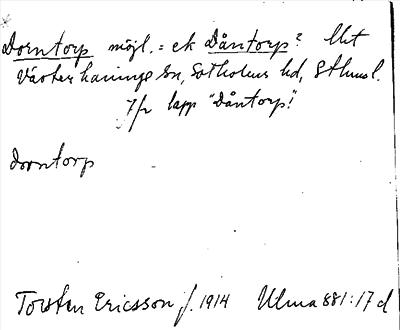 Dorntorp möjl. = ek Dåntorp?
Västerhaninge sn, Sotholms hd, Sthms l.
lapp "Dåntorp!"
Dorntorp
Torsten Ericsson f. 1914 Ulma 881:17 d